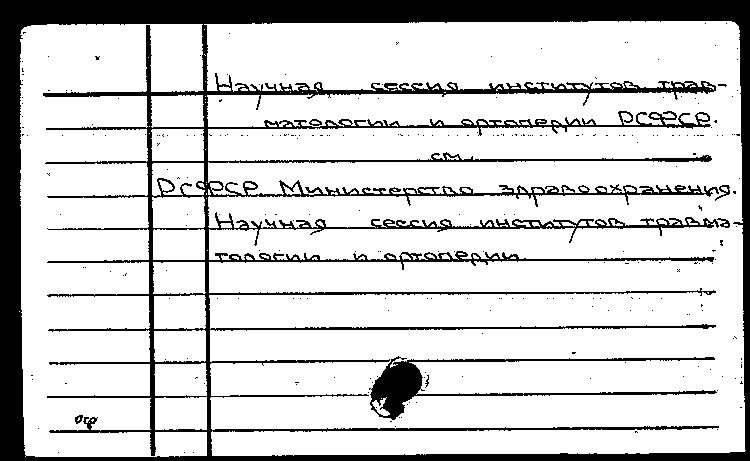 Научная сессия институтов трав-
матологии и ортопедии РСФСР.
см.
РСФСР. Министерство здравоохранения.
Научная сессия институтов травма-
тологии и ортопедии.